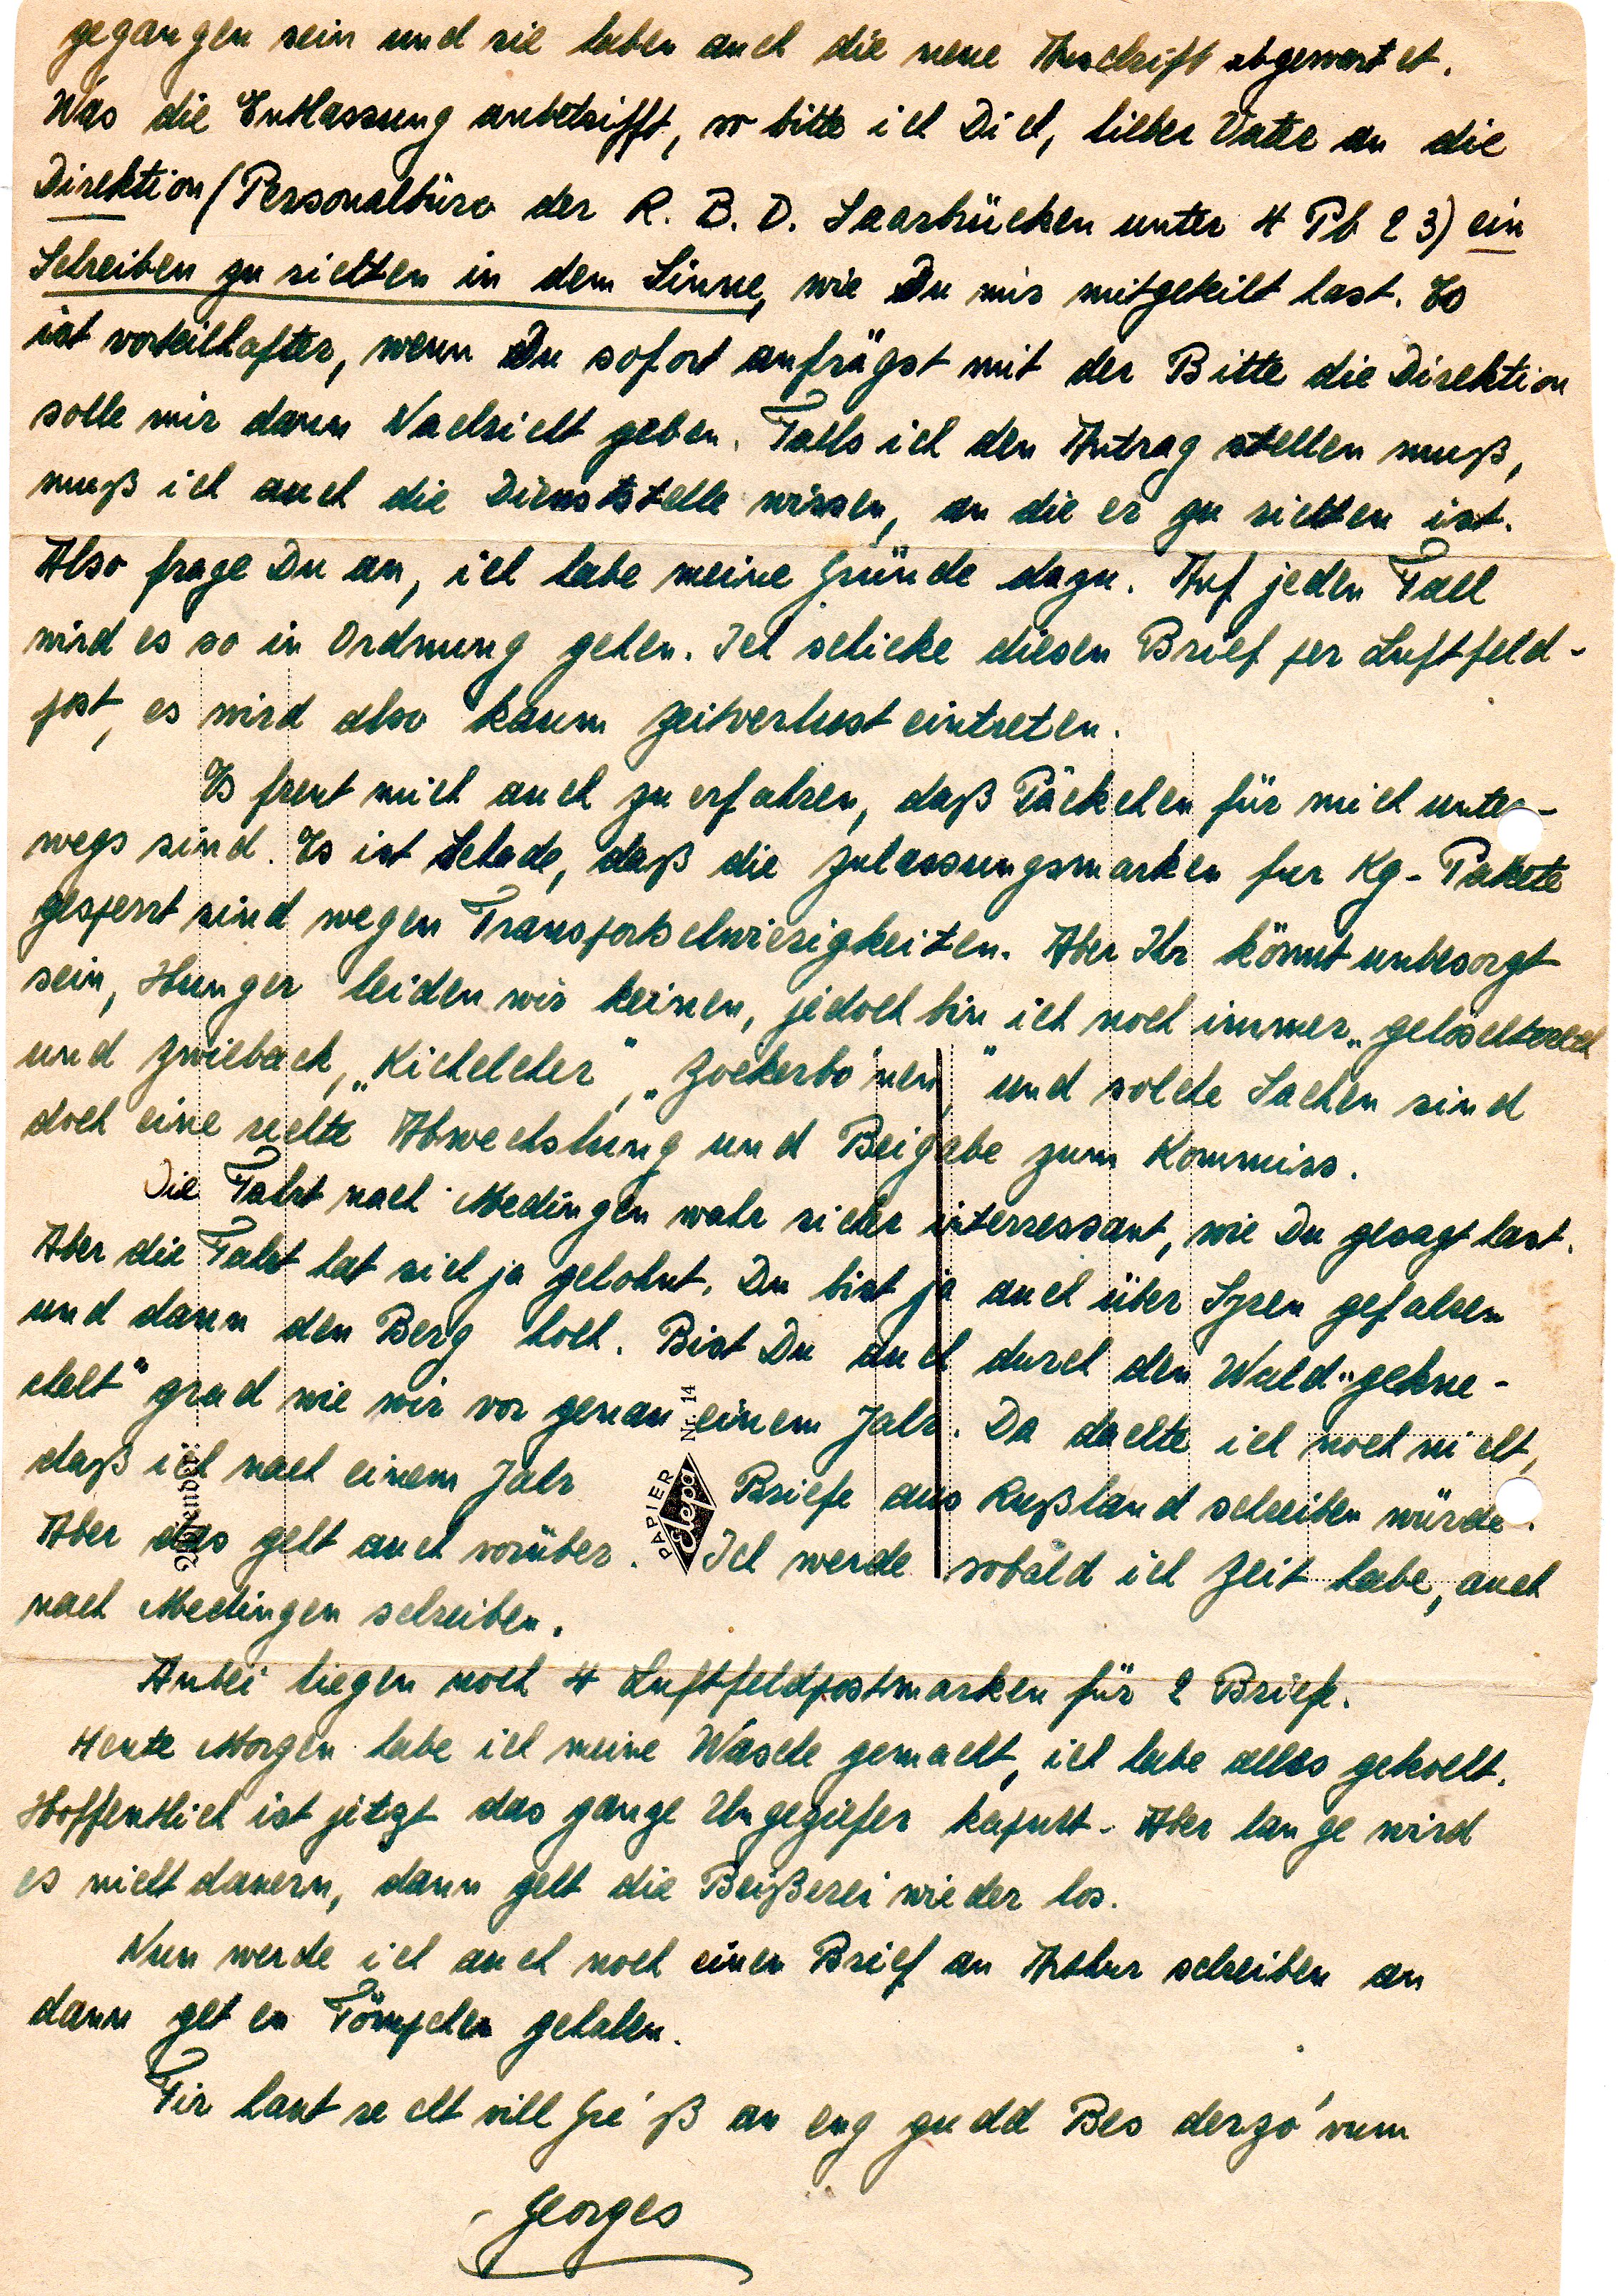 gegangen sein und sie haben auch die neue Anschrift abgewartet.
Was die Entlassung anbetrifft, so bitte ich Dich, lieber Vater an die
Direktion (Personalbüro der R. B. D. Saarbrücken unter 4 Pb 23) ein
Schreiben zu richten in dem Sinne, wie Du mir mitgeteilt hast. Es
ist vorteilhafter, wenn Du sofort anfrägst mit der Bitte die Direktion
solle mir dann Nachricht geben. Falls ich den Antrag stellen muß,
muß ich auch die Dienststelle wissen, an die er zu richten ist.
Also frage Du an, ich habe meine Gründe dazu. Auf jeden Fall
wird es so in Ordnung gehen. Ich schicke diesen Brief per Luftfeld-
post, es wird also kaum Zeitverlust eintreten.
Es freut mich auch zu erfahren, daß Päckchen für mich unter-
wegs sind. Es ist Schade, daß die Zulassungsmarken fur Kg-Pakete
gesperrt sind wegen Transportschwierigkeiten. Aber Ihr könnt unbesorgt
sein, Hunger leiden wir keinen, jedoch bin ich noch immer
und Zwieback, „Kichelcher", „Zockerbo'nen," und solche Sachen sind
doch eine rechte Abwechslung und Beigabe zum Kommiss.
Die Fahrt nach Medingen wahr sicher interressant, wie Du gesagt hast.
Aber die Fahrt hat sich ja gelohnt. Du bist ja auch über Syren gefahren
und dann den Berg hoch. Bist Du auch durch den Wald „gekne-
chelt" grad wie wir vor genau einem Jahr. Da dachte ich noch nicht,
daß ich nach einem Jahr Briefe aus Rußland schreiben würde.
Aber das geht auch vorüber. Ich werde sobald ich Zeit habe, auch
nach Medingen schreiben.
Anbei liegen noch 4 Luftfeldpostmarken für 2 Briefe.
Heute Morgen habe ich meine Wäsche gemacht, ich habe alles gekocht.
Hoffentlich ist jetzt das ganze Ungeziefer kaputt. Aber lange wird
es nicht dauern, dann geht die Beißerei wieder los.
Nun werde ich auch noch einen Brief an Arthur schreiben an
dann get en Tömpchen gehalen.
Fir haut recht vill Gre'ß an eng gudd Bes derzo' vum
Georges
Absender:
PAPIER
elepa
Nr. 14